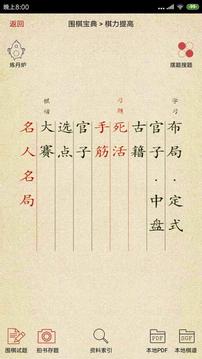 晚上8:00
返回
围棋宝典 > 棋力提高
炼丹炉
摆题搜题
学习
布局·定式
官子·中盘
古籍
习题
死活
手筋
官子
选点
棋谱
大赛
名人名局
PDF
SGF
围棋试题
拍书存题
资料索引
本地PDF
本地棋谱